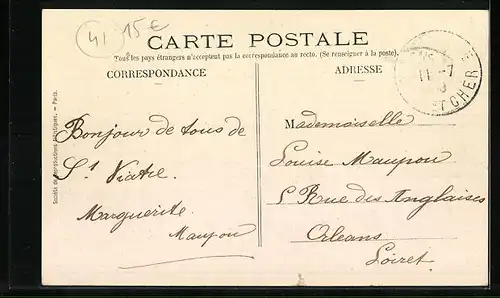 41 15€
CARTE POSTALE
Tous les pays étrangers n'acceptent pas la correspondance au recto. (Se renseigner à la poste).
CORRESPONDANCE
ADRESSE
11-7
CHER
Société de reproductions artistiques. — Paris.
Bonjour de tous de
St Viatre.
Marguerite
Maupou
Mademoiselle
Louise Maupou
5 Rue des Anglaises
Orleans
Loiret.